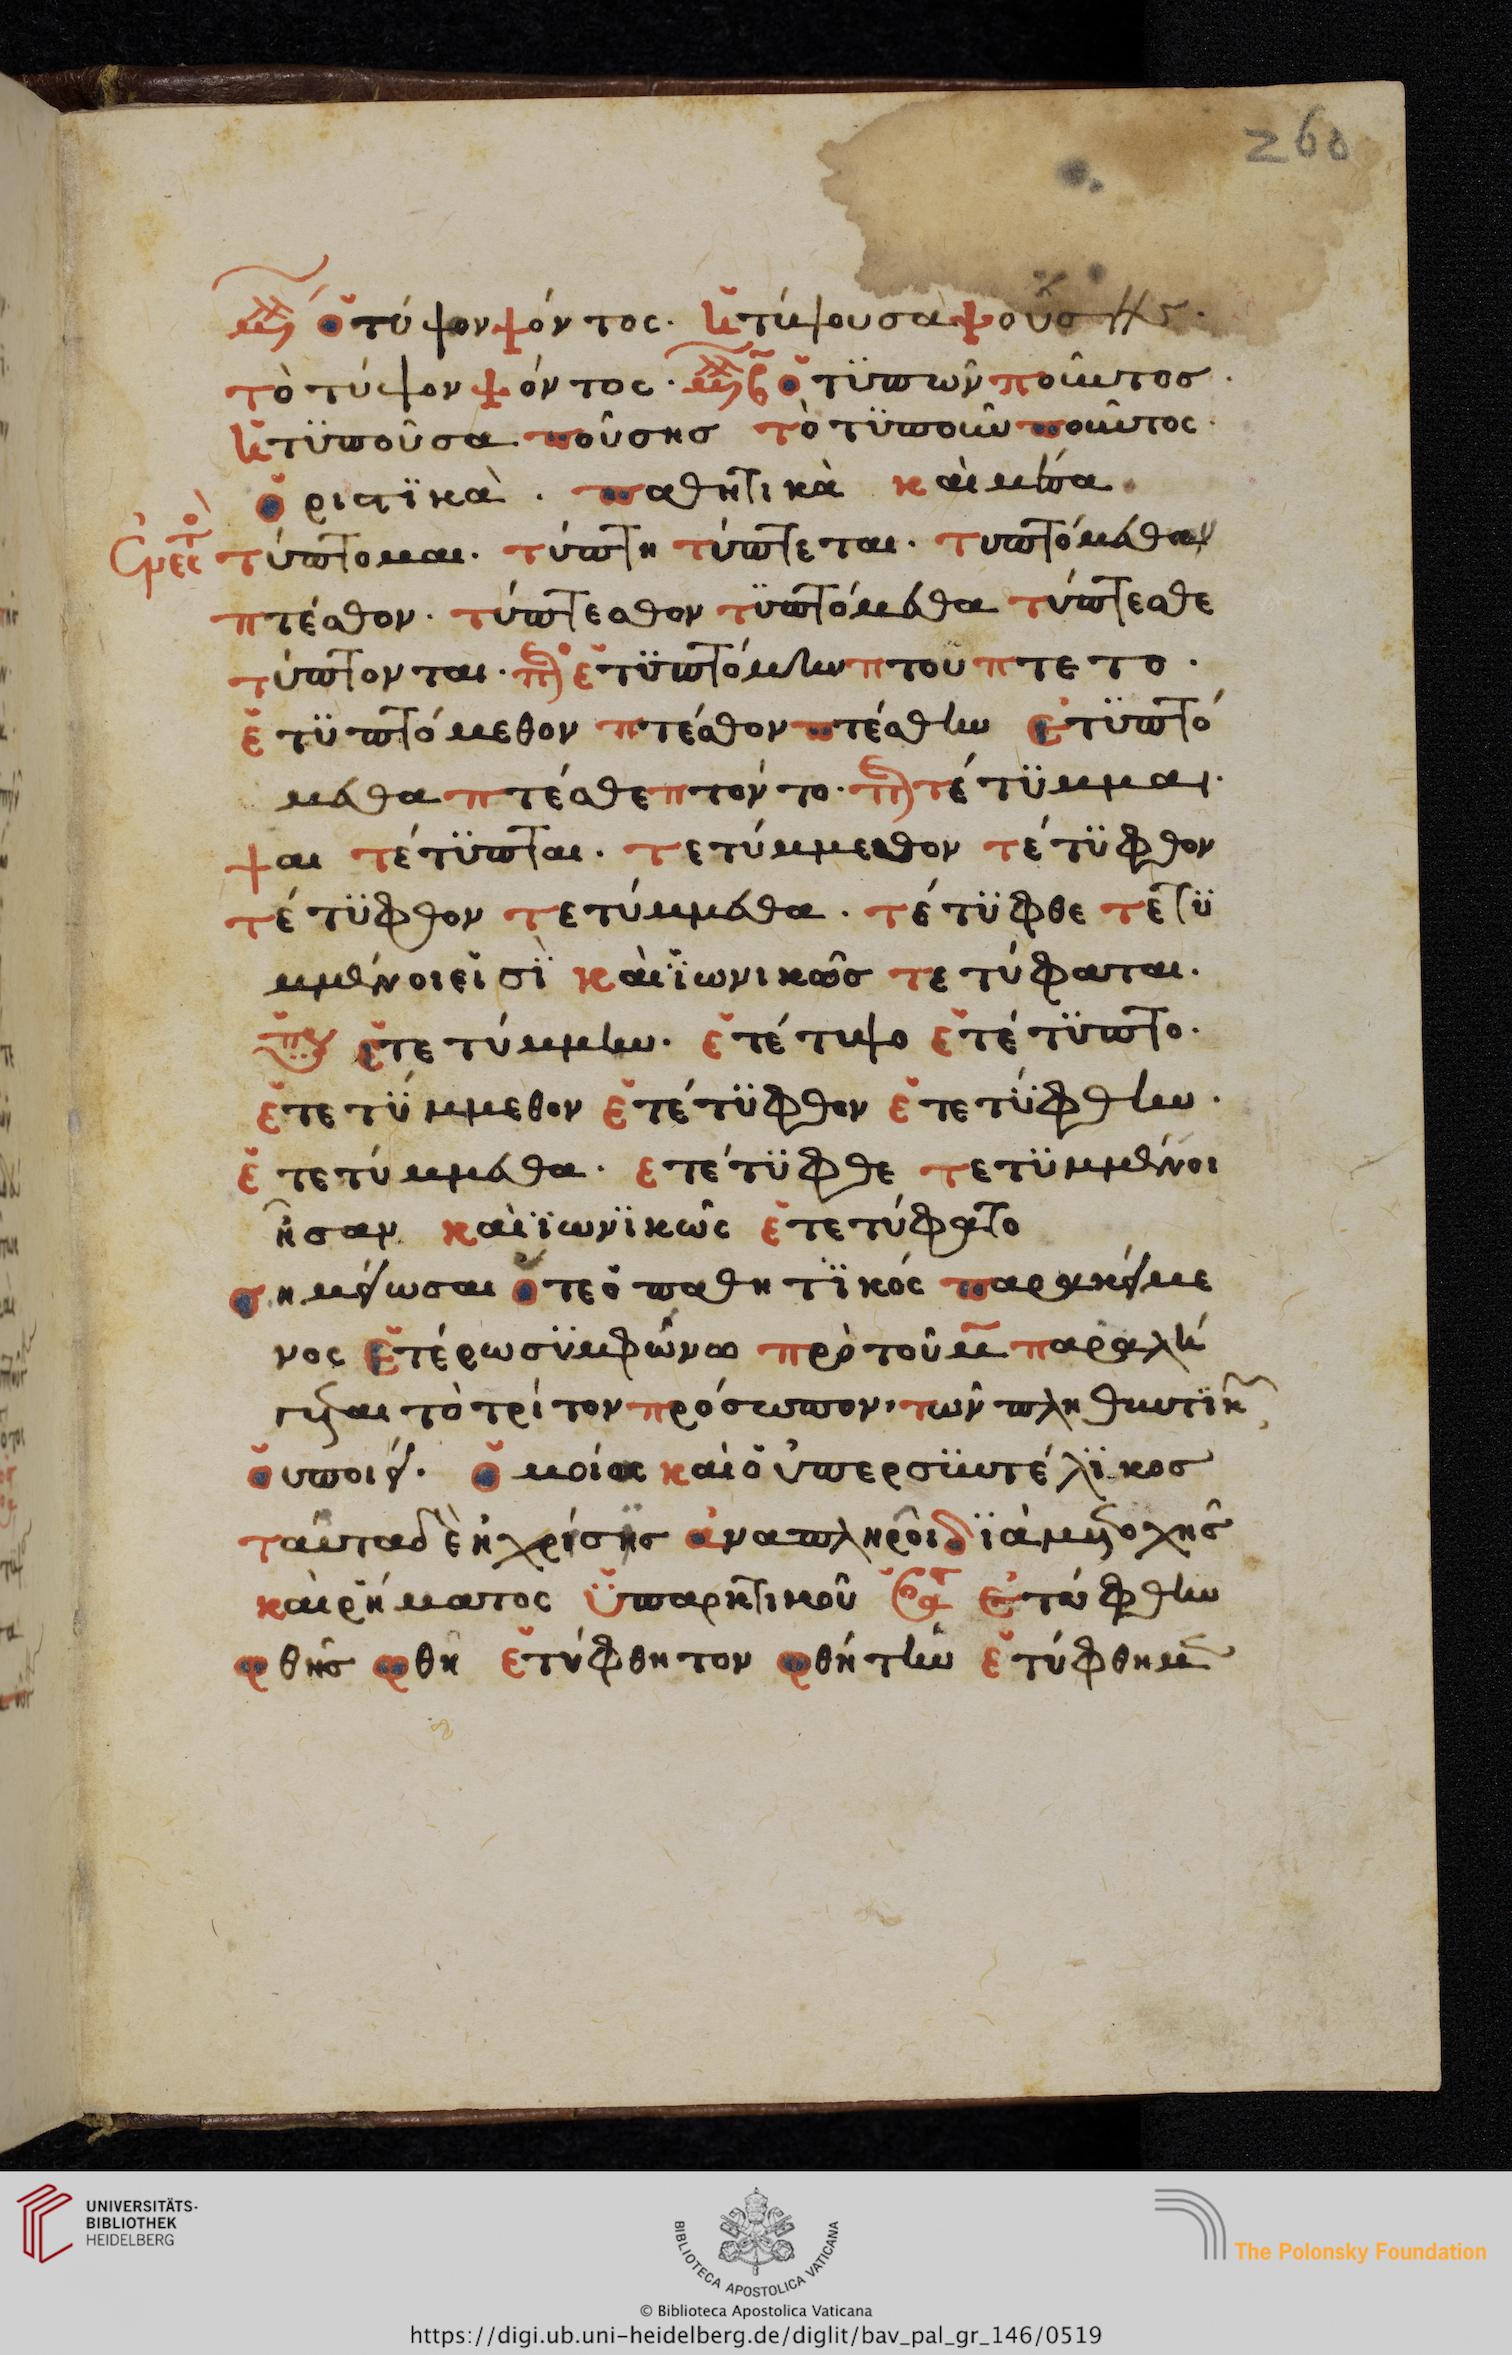 260
ὁ τύψον ψόντος. ἡ τύψουσα ψούσης.
τὸ τύψον ψόντος. ὁ τϋπῶν ποῦντος.
ἡ τϋποῦσα ποῦσης τὸ τϋποῦν ποῦντος.
ὁριστϊκὰ. παθητικὰ καὶ μέσα
τύπτομαι. τύπτη τύπτεται. τυπτόμεθον
πτέσθον. τύπτεσθον τϋπτόμεθα τύπτεσθε
τύπτονται. ἐτϋπτόμην πτου πτετο.
ἐτϋπτόμεθον πτέσθον πτέσθην ἐτϋπτό
μεθα πτέσθε πτόντο. τέτϋμμαι.
ψαι τέτϋπται. τετύμμεθον τέτϋφθον
τέτϋφθον τετύμμεθα. τέτϋφθε τετϋ
μμένοι εἰσῒ καὶ ϊωνικῶς τετύφαται.
ἐτετύμμην. ἐτέτυψο ἐτέτϋπτο.
ἐτετϋμμεθον ἐτέτϋφθον ἐτετϋφθην.
ἐτετύμμεθα. ετέτϋφθε τετϋμμένοι
ἦσαν καὶ ϊωνϊκῶς ἐτετύφατο
σημείωσαι ὅτε ὁ παθητϊκός παρακείμε
νος ἑτέρω σϋμφώνω πρὸ τοῦ μ παραλή
γεται τὸ τρίτον πρόσωπον, τῶν πληθυντϊκ
οὐ ποιεῖ. ὁμοίως καὶ ὁ ὑπερσϋντέλϊκος
ταῦτα δὲ ἡ χρίσης ἀναπληροῖ δϊὰ μετοχῆς
καὶ ῥήματος ὑπαρκτικοῦ ἐτύφθην
φθης φθη ἐτύφθητον φθήτην ἐτύφθημεν
UNIVERSITÄTS-
BIBLIOTHEK
HEIDELBERG
BIBLIOTECA APOSTOLICA VATICANA
The Polonsky Foundation
© Biblioteca Apostolica Vaticana
https://digi.ub.uni-heidelberg.de/diglit/bav_pal_gr_146/0519